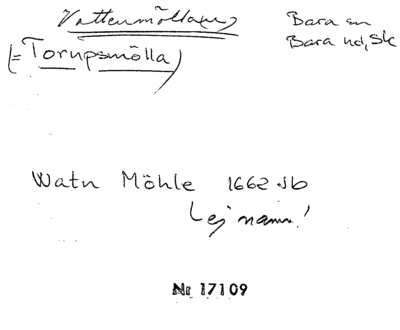 Vattenmöllan
Bara sn
(= Torupsmölla)
Bara hd, Sk
Watn Möhle 1662 Jb
Ej namn!
Nr 17109